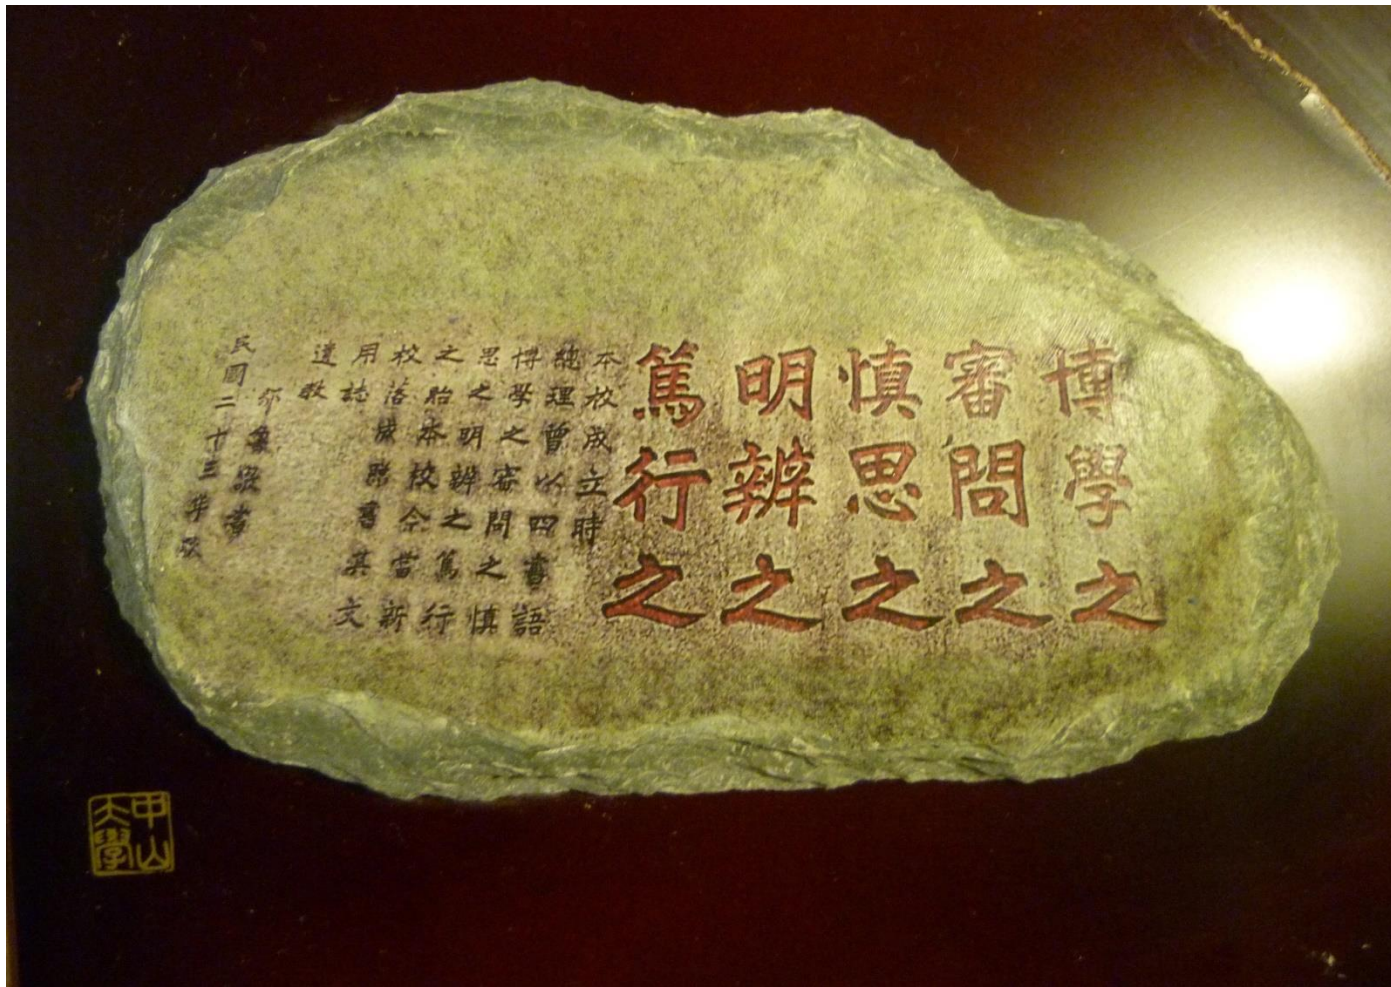 博學之
審問之
慎思之
明辨之
篤行之
本校成立時
總理曾以四書語
博學之審問之慎
思之明辨之篤行
之貽本校今當新
校落成書其文
用誌
遺教
書
民國二十三年
中山
大學